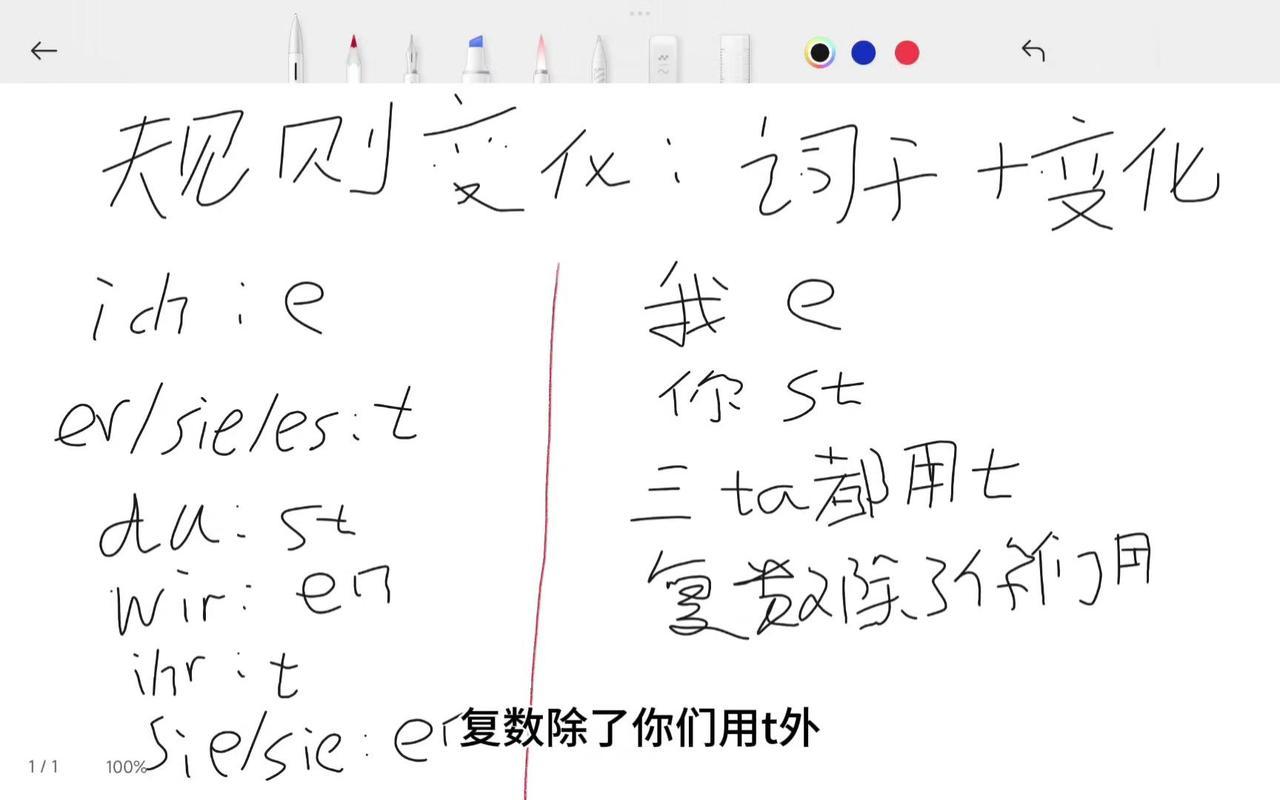 规则变化：词干+变化
ich：e
er/sie/es：t
du：st
wir：en
ihr：t
sie/sie：en
我 e
你 st
三ta都用t
复数除了你们用
复数除了你们用t外
1/1
100%